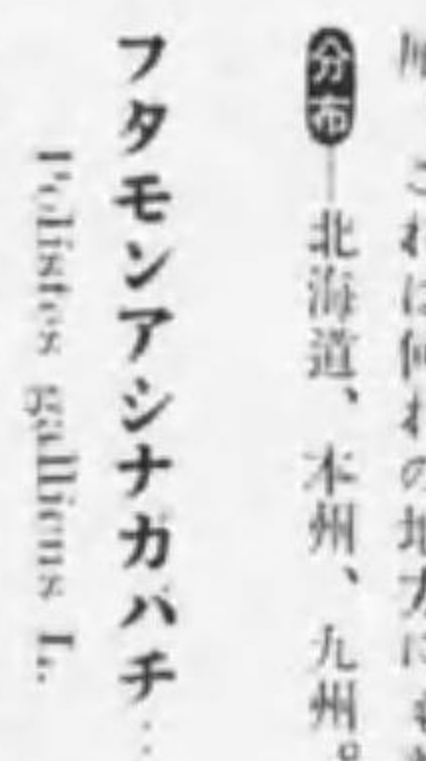 これは何れの地方にも
分布—北海道、本州、九州。
フタモンアシナガバチ‥
Polistes gallicus L.